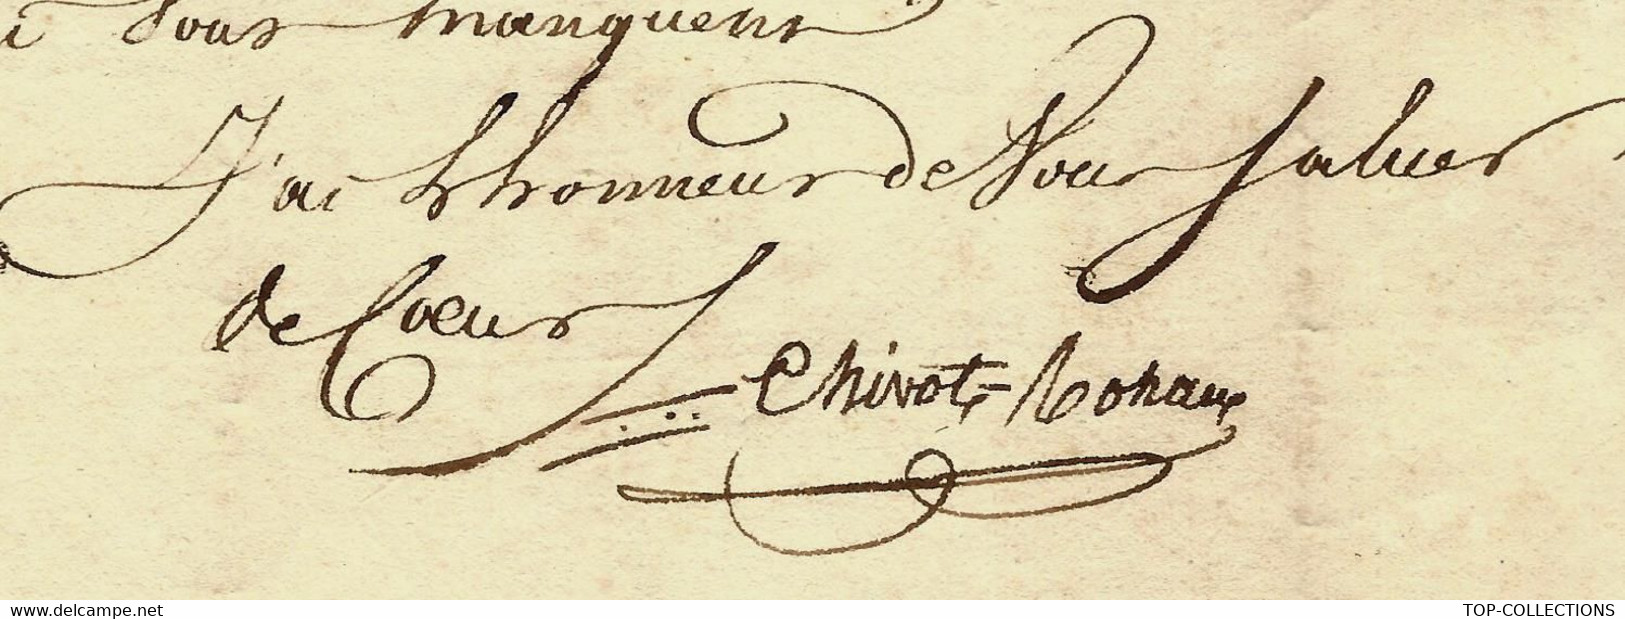 i vous manquent
J'ai l'honneur de vous saluer
de Coeur
Chivot-
www.delcampe.net
TOP-COLLECTIONS